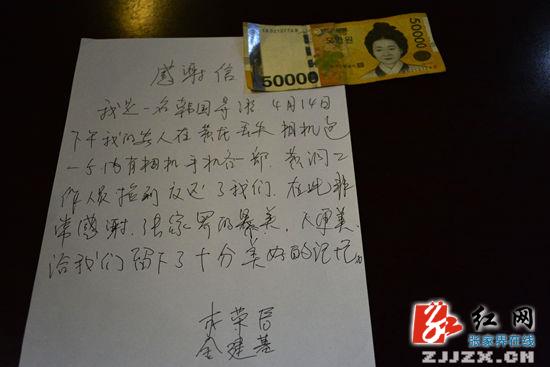 感謝信
50000
오만원
50000
我是一名韩国导游 4月14日
下午我的客人在黄龙丢失相机包
一个内有相机手机各一部. 黄洞工
作人员捡到反还了我们. 在此非
常感谢. 张家界的景美, 人更美.
给我们留下了十分美好的记忆.
荣
金建基
红网
张家界在线
ZJJZX.CN